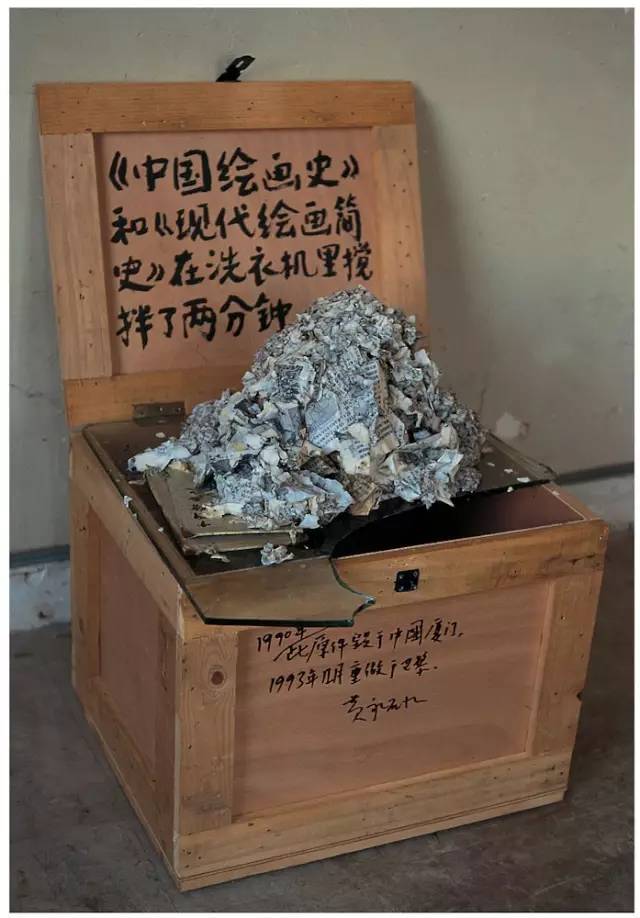 《中国绘画史》
和《现代绘画简
史》在洗衣机里搅
拌了两分钟
1990年
此原件毁于中国厦门.
1993年11月重做于巴黎.
黄永砯